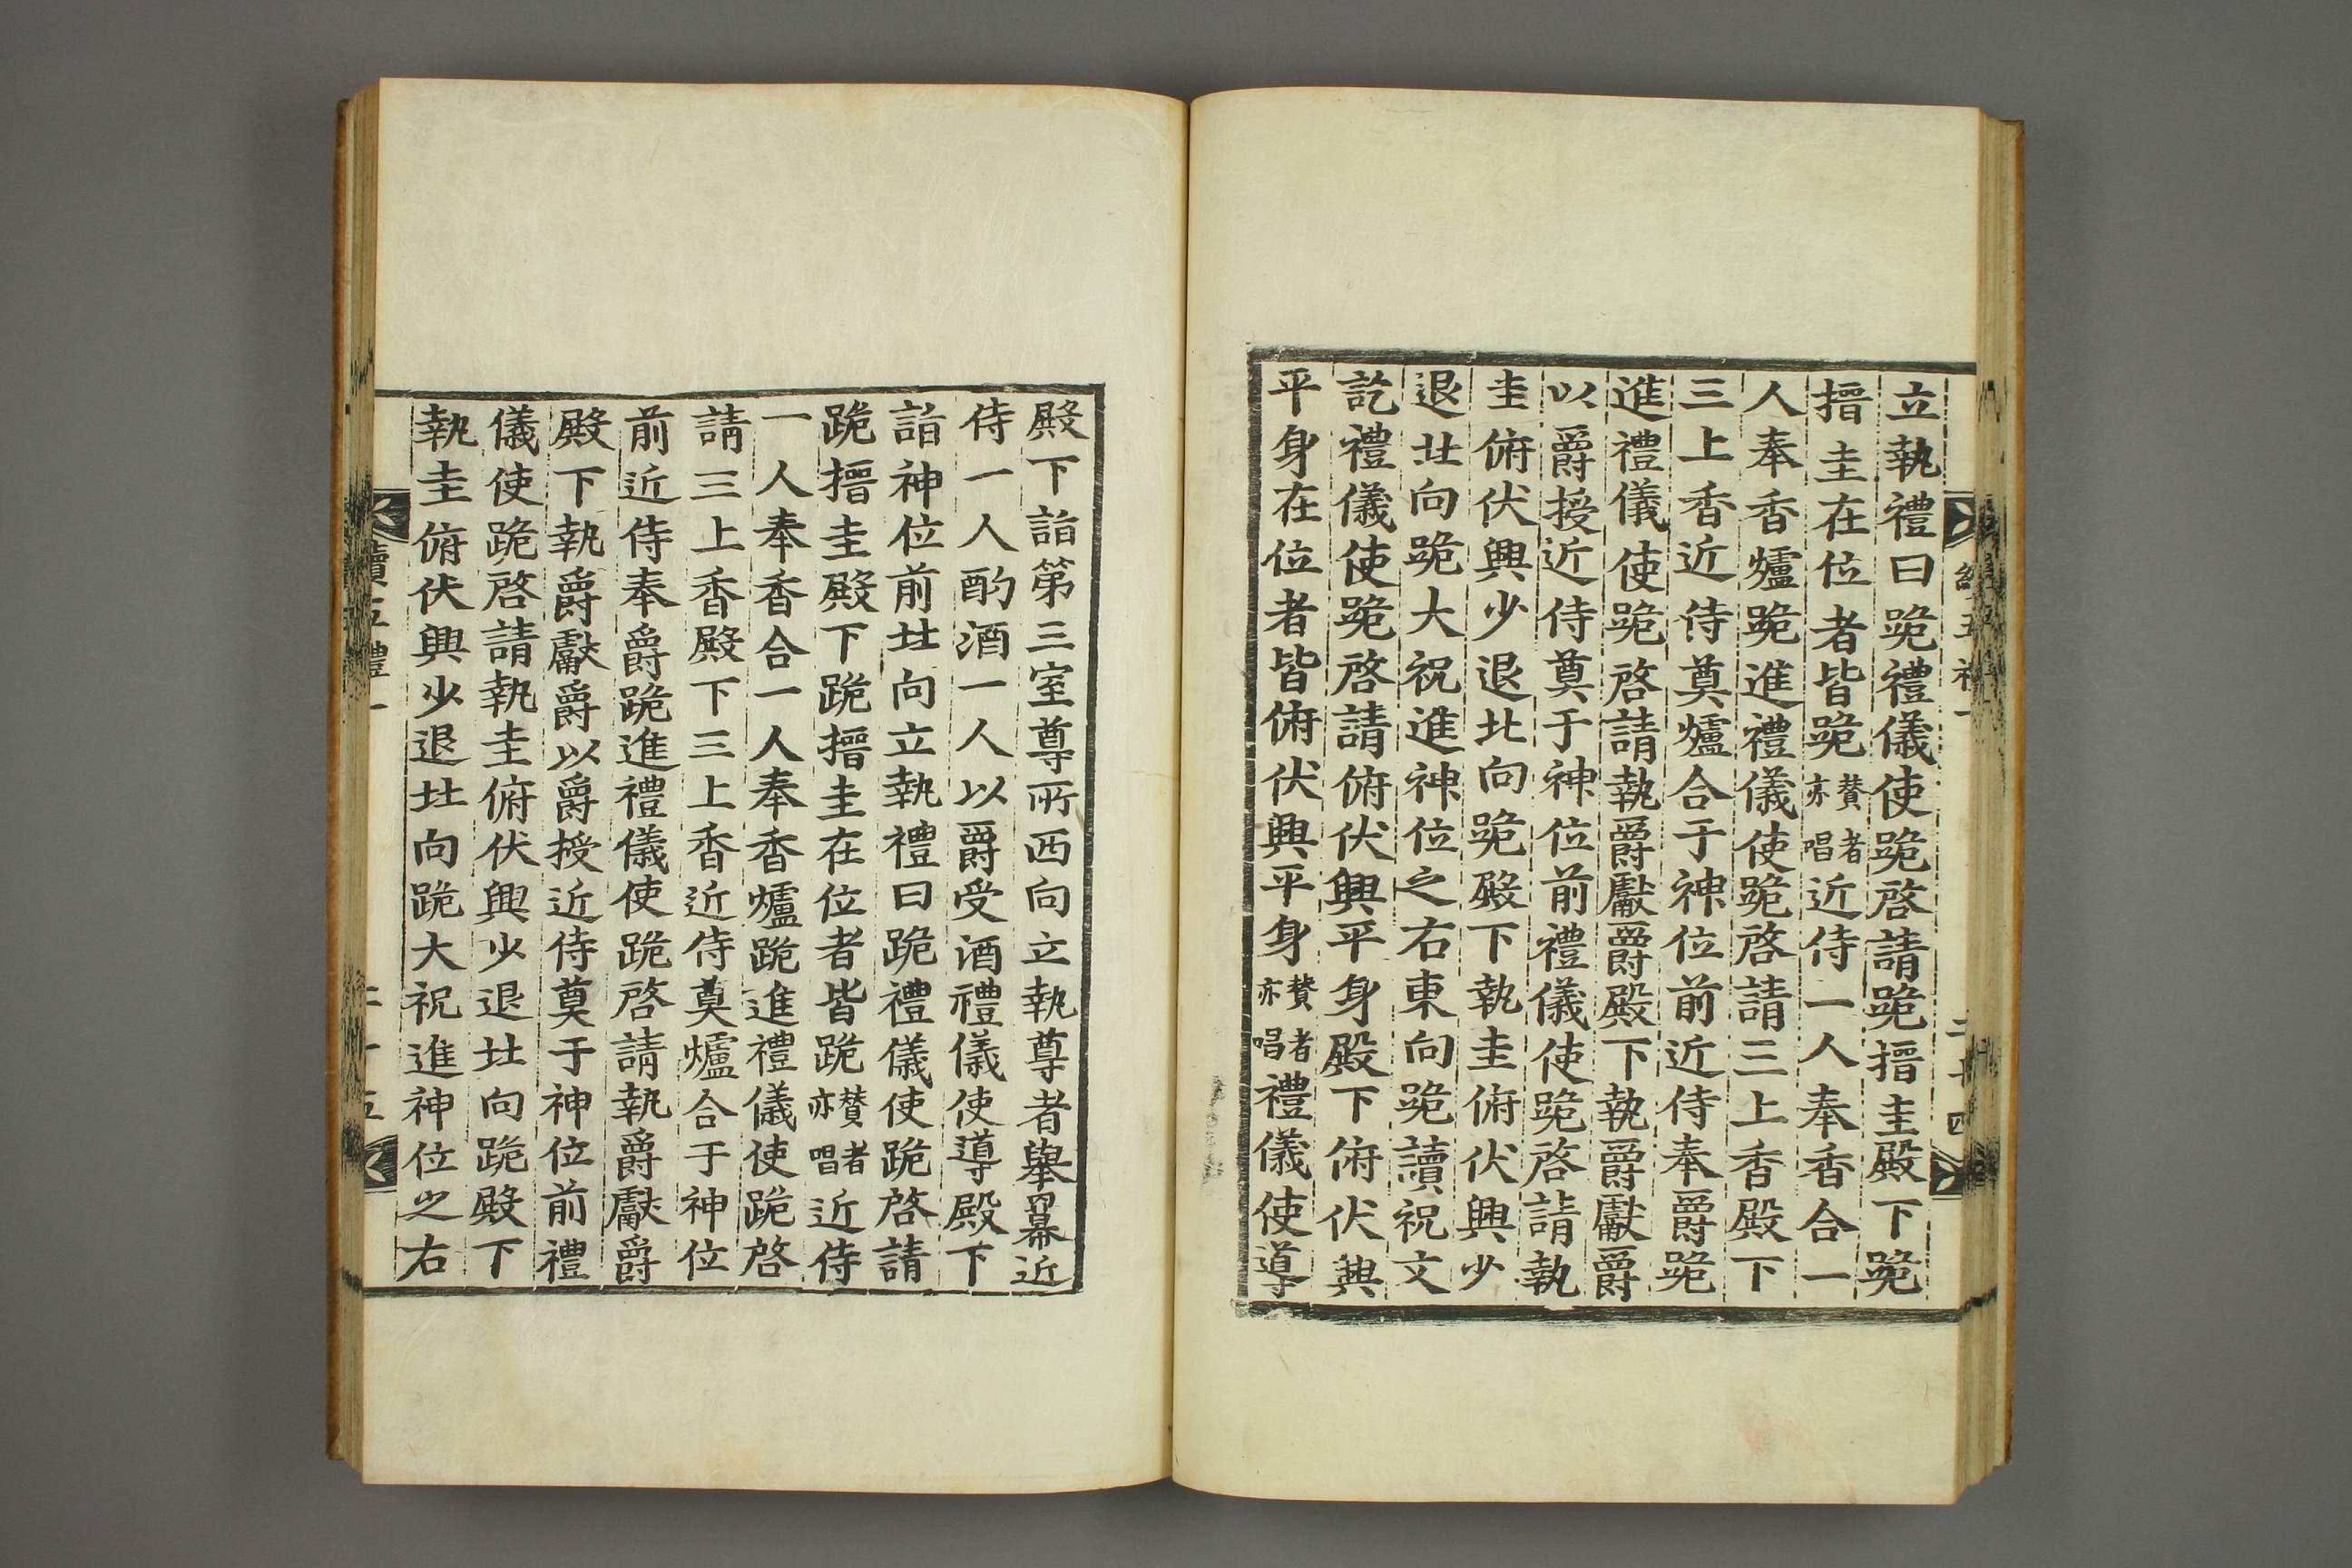 立執禮曰跪禮儀使跪啓請跪搢圭殿下跪
搢圭在位者皆跪贊者亦唱近侍一人奉香合一
人奉香爐跪進禮儀使跪啓請三上香殿下
三上香近侍奠爐合于神位前近侍奉爵跪
進禮儀使跪啓請執爵獻爵殿下執爵獻爵
以爵授近侍奠于神位前禮儀使跪啓請執
圭俯伏興少退北向跪殿下執圭俯伏興少
退北向跪大祝進神位之右東向跪讀祝文
訖禮儀使跪啓請俯伏興平身殿下俯伏興
平身在位者皆俯伏興平身贊者亦唱禮儀使導
殿下詣第三室尊所西向立執尊者擧冪近
侍一人酌酒一人以爵受酒禮儀使導殿下
詣神位前北向立執禮曰跪禮儀使跪啓請
跪搢圭殿下跪搢圭在位者皆跪贊者亦唱近侍
一人奉香合一人奉香爐跪進禮儀使跪啓
請三上香殿下三上香近侍奠爐合于神位
前近侍奉爵跪進禮儀使跪啓請執爵獻爵
殿下執爵獻爵以爵授近侍奠于神位前禮
儀使跪啓請執圭俯伏興少退北向跪殿下
執圭俯伏興少退北向跪大祝進神位之右
續五禮一
二十五